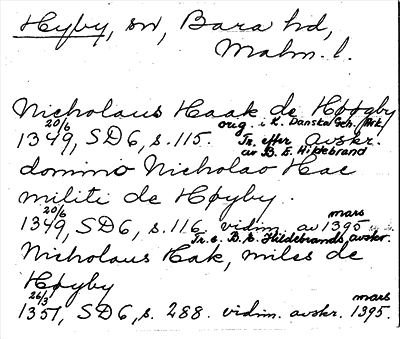 Hyby, sn, Bara hd,
Malm. l.
Nicholaus Haak de Høøgby
orig. i K. Danska Geh. Ark.
20/6 1349, SD 6, s. 115. Tr. efter avskr.
av B. E. Hildebrand
domino Nicholao Hac
militi de Høyby.
20/6 1349, SD 6, s. 116 vidim. av mars 1395
Tr. e. B. E. Hildebrands avskr.
Nicholaus Hak, miles de
Høyby
26/3 1351, SD 6, s. 288. vidim. avskr. mars 1395.